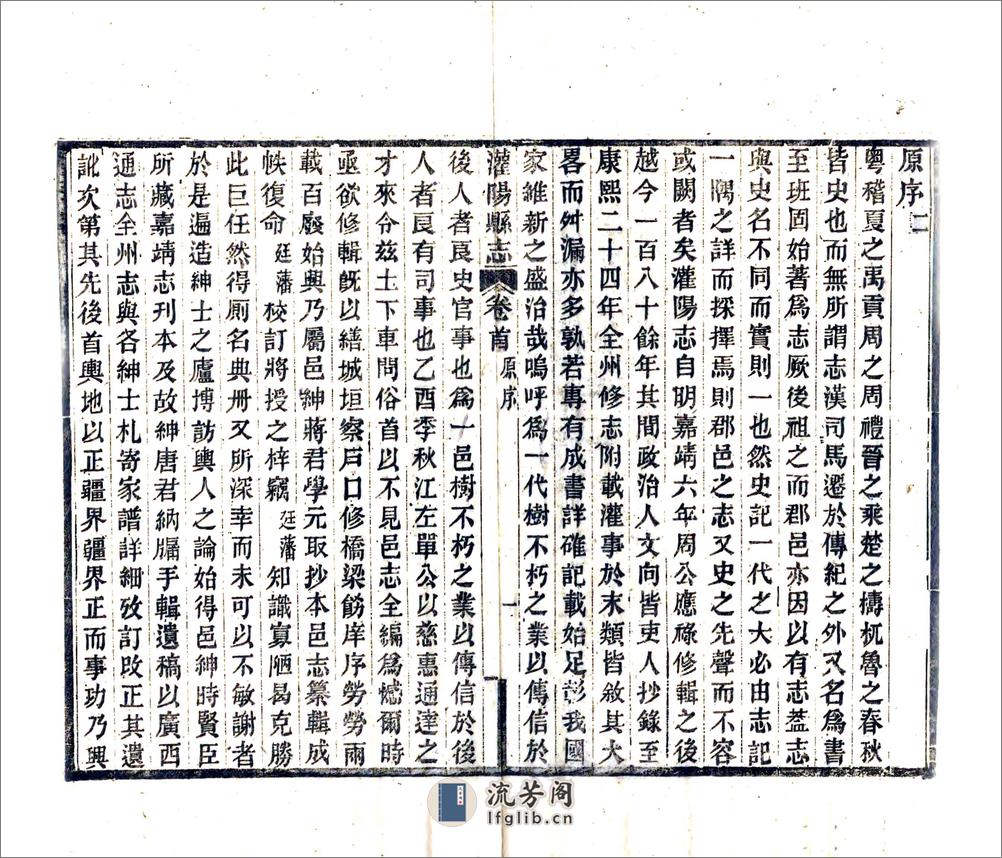 原序二
粵稽夏之禹貢周之周禮晉之乘楚之檮杌魯之春秋
皆史也而無所謂志漢司馬遷於傳紀之外又名爲書
至班固始著爲志厥後祖之而郡邑亦因以有志蓋志
與史名不同而實則一也然史記一代之大必由志記
一隅之詳而採擇焉則郡邑之志又史之先聲而不容
或闕者矣灌陽志自明嘉靖六年周公應祿修輯之後
越今一百八十餘年其間政治人文向皆吏人抄錄至
康熙二十四年全州修志附載灌事於末類皆敘其大
畧而舛漏亦多孰若專有成書詳確記載始足彰我國
家維新之盛治哉嗚呼爲一代樹不朽之業以傳信於
灌陽縣志 卷首 原序 一
後人者良史官事也爲一邑樹不朽之業以傳信於後
人者良有司事也乙酉季秋江左單公以慈惠通達之
才來令兹土下車問俗首以不見邑志全編爲憾爾時
亟欲修輯旣以繕城垣察戸口修橋梁飭庠序勞勞兩
載百廢始興乃屬邑紳蔣君學元取抄本邑志纂輯成
帙復命廷藩校訂將授之梓竊廷藩知識寡陋曷克勝
此巨任然得厠名典册又所深幸而未可以不敏謝者
於是遍造紳士之廬博訪輿人之論始得邑紳時賢臣
所藏嘉靖志刊本及故紳唐君納牖手輯遺稿以廣西
通志全州志與各紳士札寄家譜詳細攷訂改正其遺
訛次第其先後首輿地以正疆界疆界正而事功乃興
流芳阁
lfglib.cn